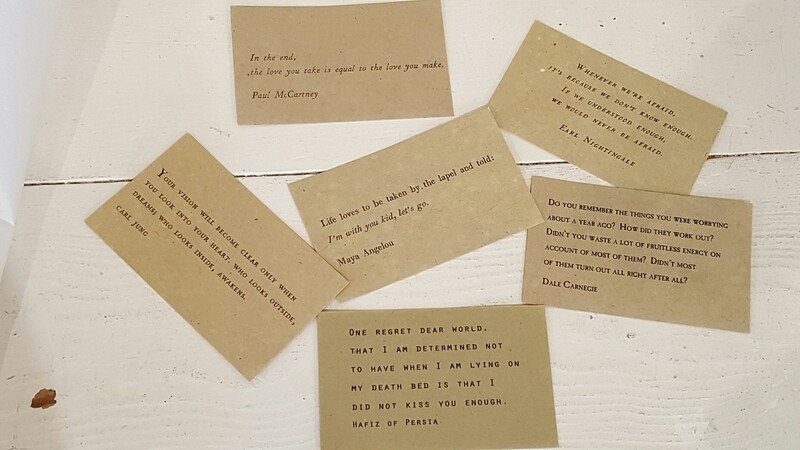 In the end,
the love you take is equal to the love you make.
Paul McCartney
Whenever we're afraid,
it's because we don't know enough.
If we understood enough,
we would never be afraid.
Earl Nightingale
Your vision will become clear only when
you look into your heart. Who looks outside,
dreams; who looks inside, awakens.
Carl Jung
Life loves to be taken by the lapel and told:
I'm with you kid, let's go.
Maya Angelou
Do you remember the things you were worrying
about a year ago? How did they work out?
Didn't you waste a lot of fruitless energy on
account of most of them? Didn't most
of them turn out all right after all?
Dale Carnegie
One regret dear world,
that I am determined not
to have when I am lying on
my death bed is that I
did not kiss you enough.
Hafiz of Persia